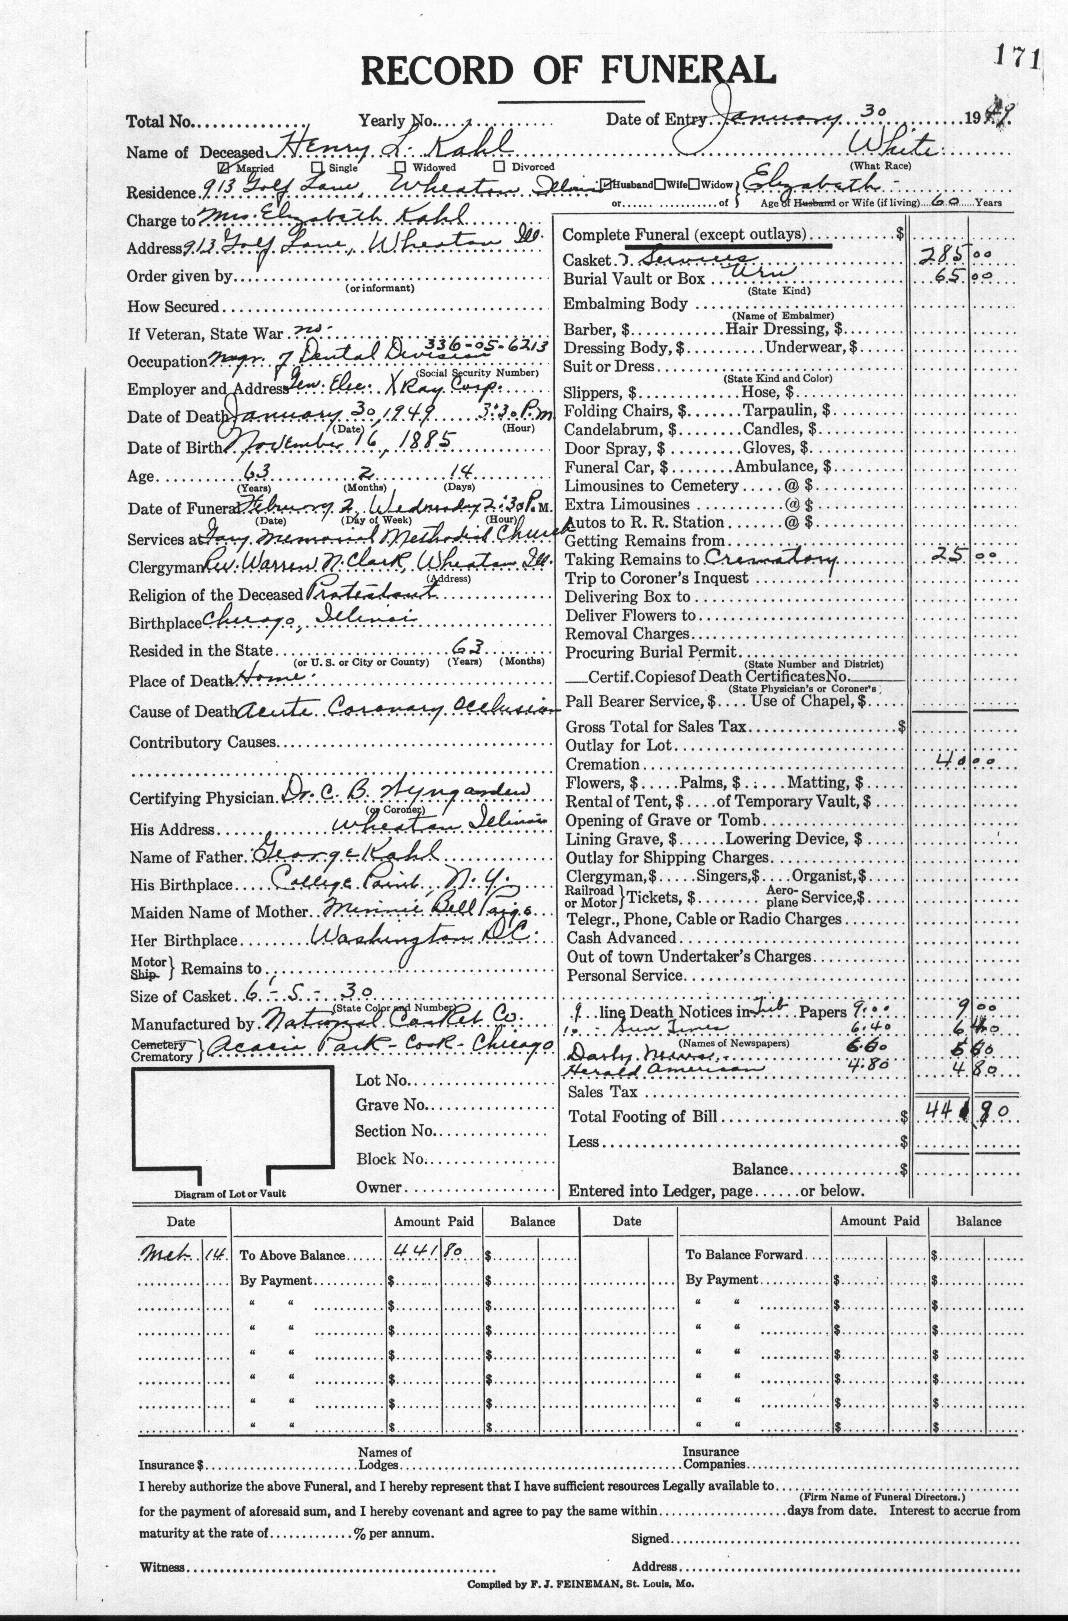 171
RECORD OF FUNERAL
Total No. Yearly No. Date of Entry January 30 1949
Name of Deceased Henry L. Kahl White
Married Single Widowed Divorced (What Race)
Residence 913 Golf Lane, Wheaton Illinois Husband Wife Widow Elizabeth
or of Age of Husband or Wife (if living) 60 Years
Charge to Mrs. Elizabeth Kahl
Address 913 Golf Lane, Wheaton Ill
Order given by
(or informant)
How Secured
If Veteran, State War no.
336-05-6213
Occupation Mngr. of Dental Division
(Social Security Number)
Employer and Address Gen. Elec. X Ray Corp.
Date of Death January 30, 1949 3:30 P.M.
(Date) (Hour)
Date of Birth November 16, 1885
Age 63 2 14
(Years) (Months) (Days)
Date of Funeral February 2, Wednesday 2:30 P.M.
(Date) (Day of Week) (Hour)
Services at Gary Memorial Methodist Church
Clergyman Rev. Warren N. Clark, Wheaton Ill.
(Address)
Religion of the Deceased Protestant
Birthplace Chicago, Illinois
Resided in the State 63
(or U. S. or City or County) (Years) (Months)
Place of Death Home
Cause of Death Acute Coronary Occlusion
Contributory Causes
Certifying Physician Dr. C. B.
(or Coroner)
His Address Wheaton Illinois
Name of Father George Kahl
His Birthplace College Point, N.Y.
Maiden Name of Mother Minnie Bell Paige
Her Birthplace Washington D.C.
Motor
Ship Remains to
Size of Casket 6'-5-30
(State Color and Number)
Manufactured by National Casket Co.
Cemetery
Crematory Acacia Park-Cook-Chicago
Lot No.
Grave No.
Section No.
Block No.
Owner
Diagram of Lot or Vault
Complete Funeral (except outlays) $
Casket & Services 285 00
Burial Vault or Box Urn 65 00
(State Kind)
Embalming Body
(Name of Embalmer)
Barber, $ Hair Dressing, $
Dressing Body, $ Underwear, $
Suit or Dress
(State Kind and Color)
Slippers, $ Hose, $
Folding Chairs, $ Tarpaulin, $
Candelabrum, $ Candles, $
Door Spray, $ Gloves, $
Funeral Car, $ Ambulance, $
Limousines to Cemetery @ $
Extra Limousines @ $
Autos to R. R. Station @ $
Getting Remains from
Taking Remains to Crematory 25 00
Trip to Coroner's Inquest
Delivering Box to
Deliver Flowers to
Removal Charges
Procuring Burial Permit
(State Number and District)
Certif. Copies of Death Certificates No.
(State Physician's or Coroner's)
Pall Bearer Service, $ Use of Chapel, $
Gross Total for Sales Tax $
Outlay for Lot
Cremation 40 00
Flowers, $ Palms, $ Matting, $
Rental of Tent, $ of Temporary Vault, $
Opening of Grave or Tomb
Lining Grave, $ Lowering Device, $
Outlay for Shipping Charges
Clergyman, $ Singers, $ Organist, $
Railroad or Motor Tickets, $ Aeroplane Service, $
Telegr., Phone, Cable or Radio Charges
Cash Advanced
Out of town Undertaker's Charges
Personal Service
9 line Death Notices in Trib. Papers 9.00 9 00
10 - Sun Times 6.40 6 40
(Names of Newspapers)
Daily News 6.60 60
Herald American 4.80 4 80
Sales Tax
Total Footing of Bill $ 441 80
Less $
Balance $
Entered into Ledger, page or below.
Date Amount Paid Balance Date Amount Paid Balance
Mch. 14 To Above Balance 441 80 $ To Balance Forward $
By Payment $ $ By Payment $ $
“ “ $ $ “ “ $ $
“ “ $ $ “ “ $ $
“ “ $ $ “ “ $ $
“ “ $ $ “ “ $ $
“ “ $ $ “ “ $ $
“ “ $ $ “ “ $ $
Insurance $ Names of Lodges Insurance Companies
I hereby authorize the above Funeral, and I hereby represent that I have sufficient resources Legally available to
(Firm Name of Funeral Directors.)
for the payment of aforesaid sum, and I hereby covenant and agree to pay the same within days from date. Interest to accrue from
maturity at the rate of % per annum.
Signed
Witness Address
Compiled by F. J. FEINEMAN, St. Louis, Mo.